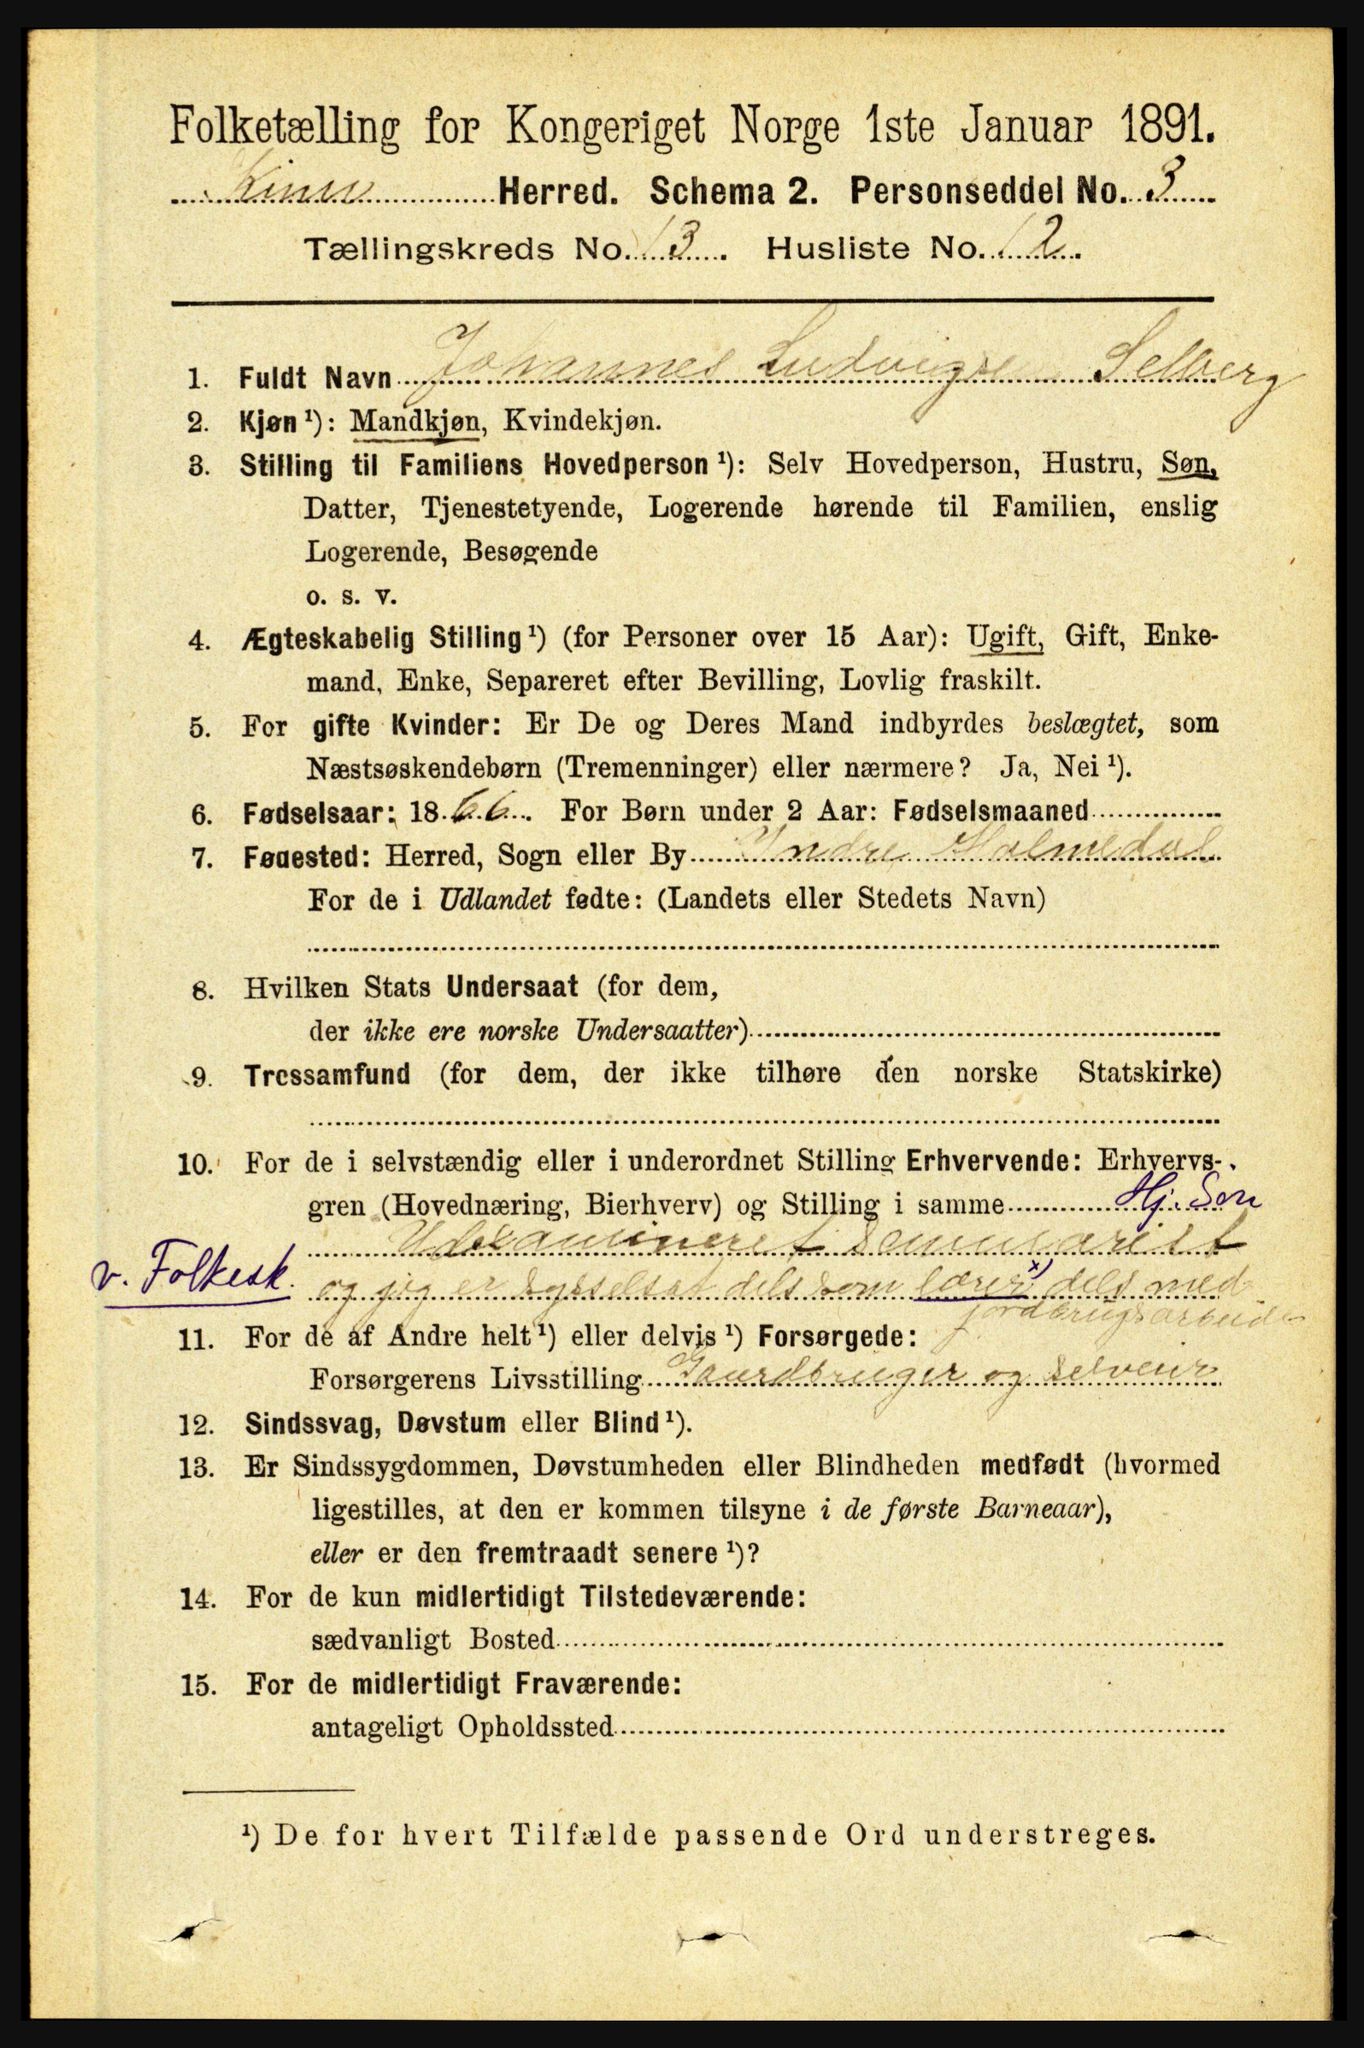 Folketælling for Kongeriget Norge 1ste Januar 1891.
Kinn Herred. Schema 2. Personseddel No. 3
Tællingskreds No. 13. Husliste No. 12.
1. Fuldt Navn Johannes Ludvigsen Selberg
2. Kjøn ¹): Mandkjøn, Kvindekjøn.
3. Stilling til Familiens Hovedperson ¹): Selv Hovedperson, Hustru, Søn,
Datter, Tjenestetyende, Logerende hørende til Familien, enslig
Logerende, Besøgende
o. s. v.
4. Ægteskabelig Stilling ¹) (for Personer over 15 Aar): Ugift, Gift, Enke-
mand, Enke, Separeret efter Bevilling, Lovlig fraskilt.
5. For gifte Kvinder: Er De og Deres Mand indbyrdes beslægtet, som
Næstsøskendebørn (Tremenninger) eller nærmere? Ja, Nei ¹).
6. Fødselsaar: 1866. For Børn under 2 Aar: Fødselsmaaned
7. Føaested: Herred, Sogn eller By Yndre Holmedal
For de i Udlandet fødte: (Landets eller Stedets Navn)
8. Hvilken Stats Undersaat (for dem,
der ikke ere norske Undersaatter)
9. Trossamfund (for dem, der ikke tilhøre den norske Statskirke)
10. For de i selvstændig eller i underordnet Stilling Erhvervende: Erhvervs-
gren (Hovednæring, Bierhverv) og Stilling i samme Hj. Søn
Udexamineret seminarist
v. Folkesk. og jeg er sysselsat dels som lærer x) dels med
jordbrugsarbeide
11. For de af Andre helt ¹) eller delvis ¹) Forsørgede:
Forsørgerens Livsstilling Gaardbruger og selveier
12. Sindssvag, Døvstum eller Blind ¹).
13. Er Sindssygdommen, Døvstumheden eller Blindheden medfødt (hvormed
ligestilles, at den er kommen tilsyne i de første Barneaar),
eller er den fremtraadt senere ¹)?
14. For de kun midlertidigt Tilstedeværende:
sædvanligt Bosted
15. For de midlertidigt Fraværende:
antageligt Opholdssted
¹) De for hvert Tilfælde passende Ord understreges.